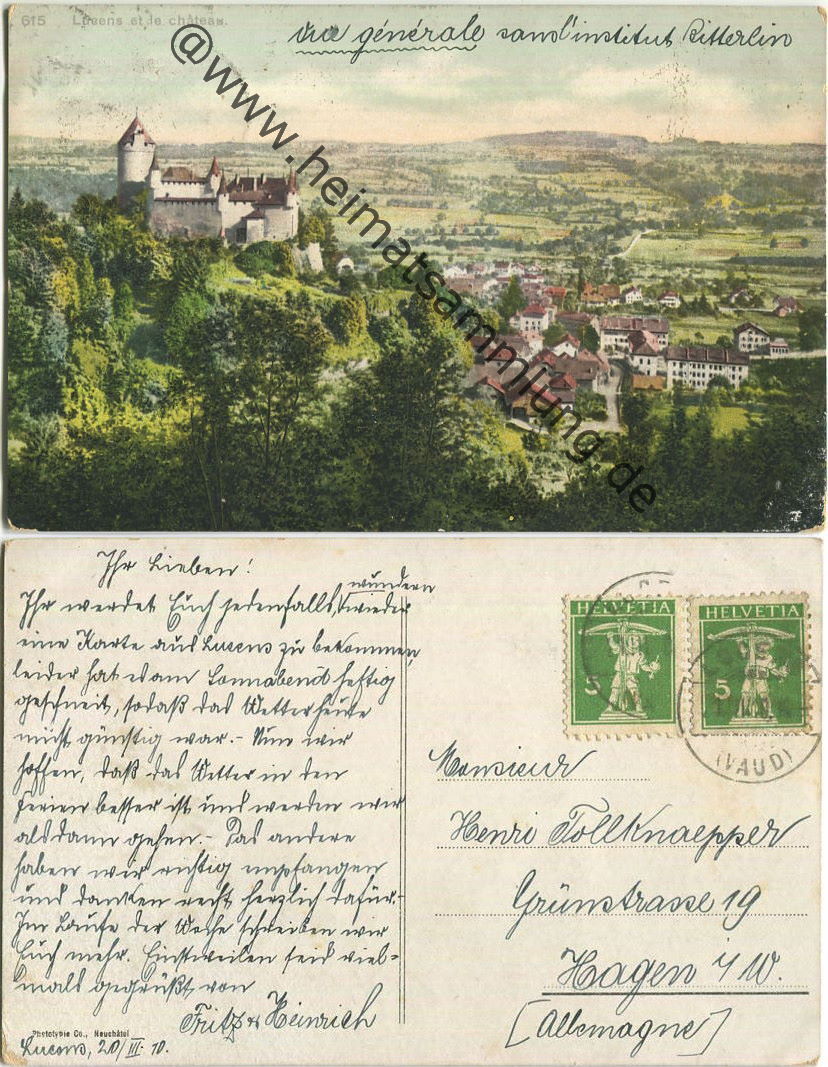 615 Lucens et le château.
vue générale sans l'institut Ritterlin
@www.heimatsammlung.de
Ihr Lieben!
wundern
Ihr werdet Euch jedenfalls, wieder
eine Karte aus Lucens zu bekommen,
leider hat es am Sonnabend heftig
geschneit, sodaß das Wetter heute
nicht günstig war.- Nun wir
hoffen, daß das Wetter in den
Ferien besser ist und werden wir
alsdann gehen.- Das andere
haben wir richtig empfangen
und danken recht herzlich dafür.-
Im Laufe der Woche schreiben wir
Euch mehr. Einstweilen seid viel-
mals gegrüßt von
Fritz & Heinrich
Phototypie Co., Neuchâtel
Lucens, 20/III. 10.
HELVETIA
5
HELVETIA
5
(VAUD)
Monsieur
Henri Tollknaepper
Grünstrasse 19
Hagen i/W.
[Allemagne]